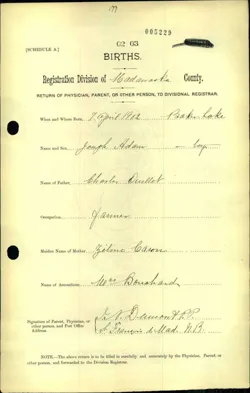 177
005229
[SCHEDULE A.]
02 03
BIRTHS.
Registration Division of Madawaska County.
RETURN OF PHYSICIAN, PARENT, OR OTHER PERSON, TO DIVISIONAL REGISTRAR.
When and Where Born. 7 April 1902 Baker Lake
Name and Sex. Joseph Adam — boy
Name of Father. Charles Ouellet
Occupation. Farmer
Maiden Name of Mother. Caron
Name of Accoucheur. Mrs Bouchard
Signature of Parent, Physician, or other person, and Post Office Address.
St Francis de Mad. N.B.
NOTE.—The above return is to be filled in carefully and accurately by the Physician, Parent, or other person, and forwarded to the Division Registrar.